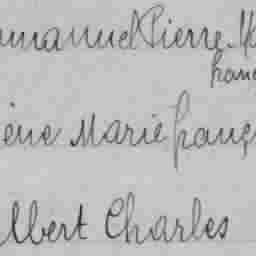 mmanuel Pierre Ma
franç
ène Marie franç
Albert Charles